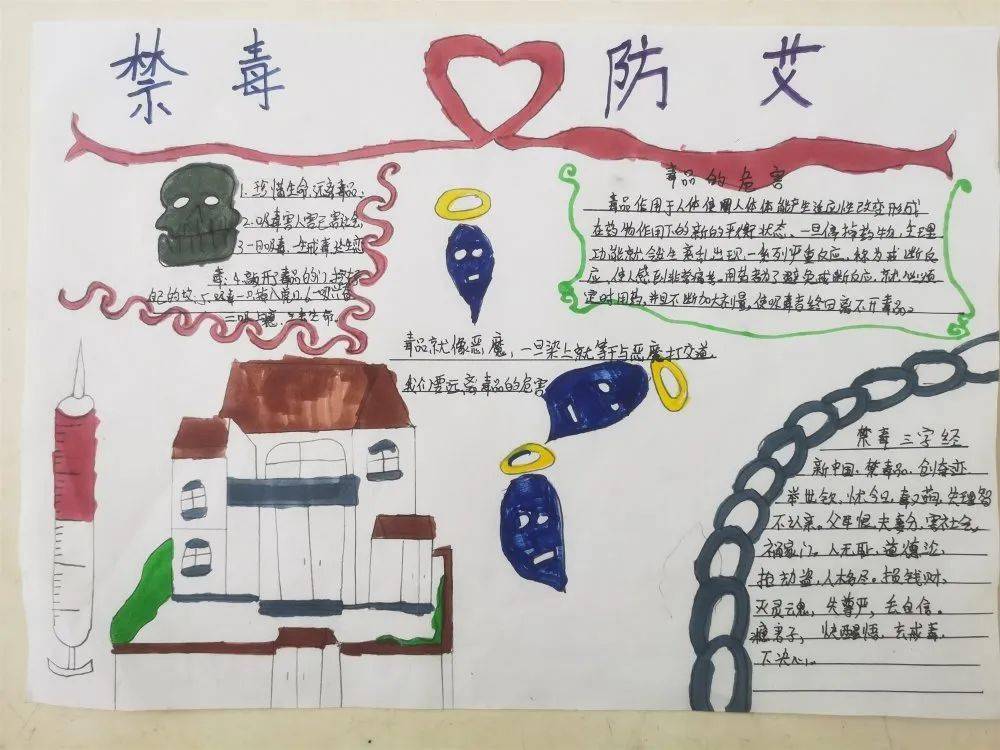 禁毒 防艾
1.珍惜生命,远离毒品;
2.吸毒害人害己害社会
3.一日吸毒,戒毒达生恋
毒;4.敲开了毒品的门,
自己的坟
毒品的危害
毒品作用于人体,使用人体体能产生适应性改变形成
在药物作用下的新的平衡状态。一旦停掉药物,生理
功能就会发生紊乱出现一系列严重反应,称为戒断反
应,使人感到非常痛苦。用药者为了避免戒断反应,就必须
定时用药,并且不断加大剂量,使吸毒者终日离不开毒品。
毒品就像恶魔,一旦染上就等于与恶魔打交道,
我们要远离毒品的危害
禁毒三字经
新中国,禁毒品,创奇迹
举世钦,忧今日,毒又萌,失理智
不认亲。父母恨,夫妻分,害社会,
祸家门。人无耻,道德沦,
拍劫盗,人格尽。损钱财,
灭灵魂,失尊严,去自信。
瘾君子,快醒悟,去戒毒,
下决心。